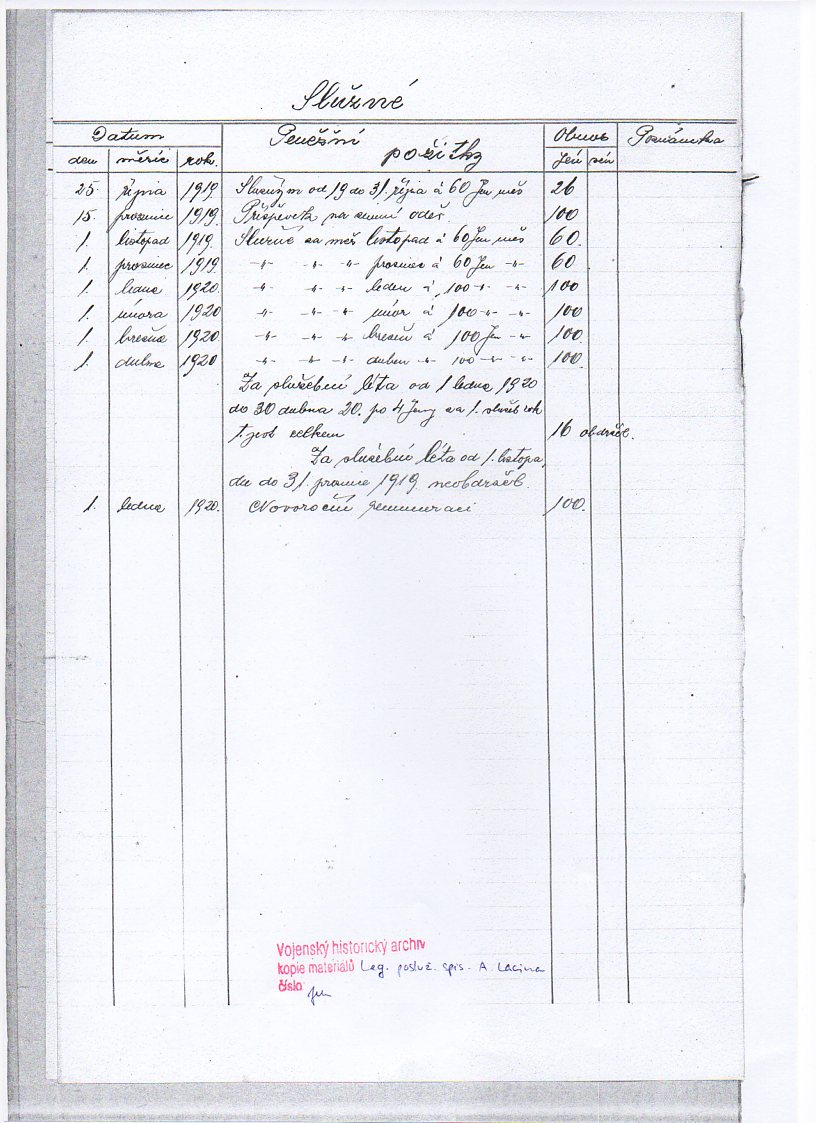 Služné
Datum Peněžní požitky Obnos Poznámka
den měsíc rok. Jen sen
25. října 1919. Služným od 19 do 31. října á 60 Jen měs 26
15. prosince 1919. Příspěvek na zimní oděv. 100
1. listopad 1919. Služné za měs listopad á 60 Jen měs 60.
1. prosinec 1919. -"- -"- -"- prosinec á 60 Jen -"- 60
1. ledna 1920. -"- -"- -"- leden á 100 -"- -"- 100
1. února 1920 -"- -"- -"- únor á 100 -"- -"- 100
1. března 1920. -"- -"- -"- březen á 100 Jen -"- 100.
1. dubna 1920 -"- -"- -"- duben -"- 100 -"- -"- 100.
Za služební léta od 1 ledna 1920
do 30 dubna 20. po 4 Jeny za 1. služeb rok
t. jest celkem 16 obdržel.
Za služební léta od 1. listopa
du do 31. prosince 1919. neobdržel.
1. ledna 1920. Novoroční remuneraci 100.
Vojenský historický archiv
kopie materiálů Leg. posluž. spis - A. Lacina
číslo